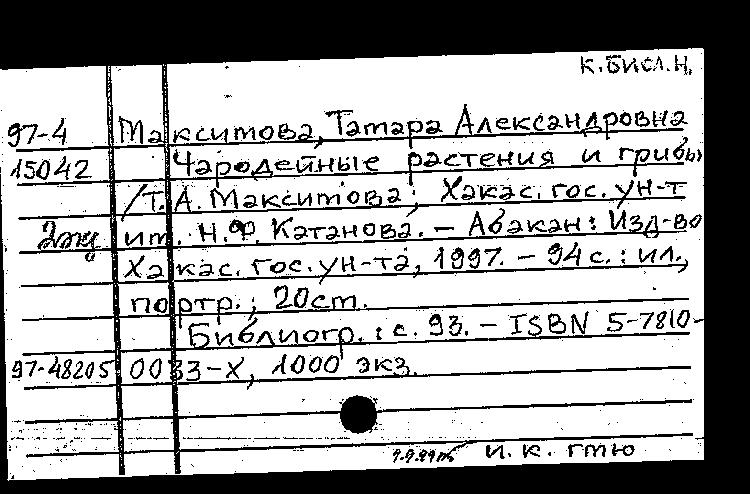 К.БИСЛ.Н.
97-4 Максимова, Тамара Александровна
15042 Чародейные растения и грибы
/Т.А. Максимова; Хакас. гос. ун-т
2экз им. Н.Ф. Катанова. - Абакан: Изд-во
Хакас. гос. ун-та, 1997. - 94 с.: ил.,
портр.; 20см.
Библиогр.: с. 93. - ISBN 5-7810-
97-48205 0033-Х, 1000 экз.
и. к. гтю